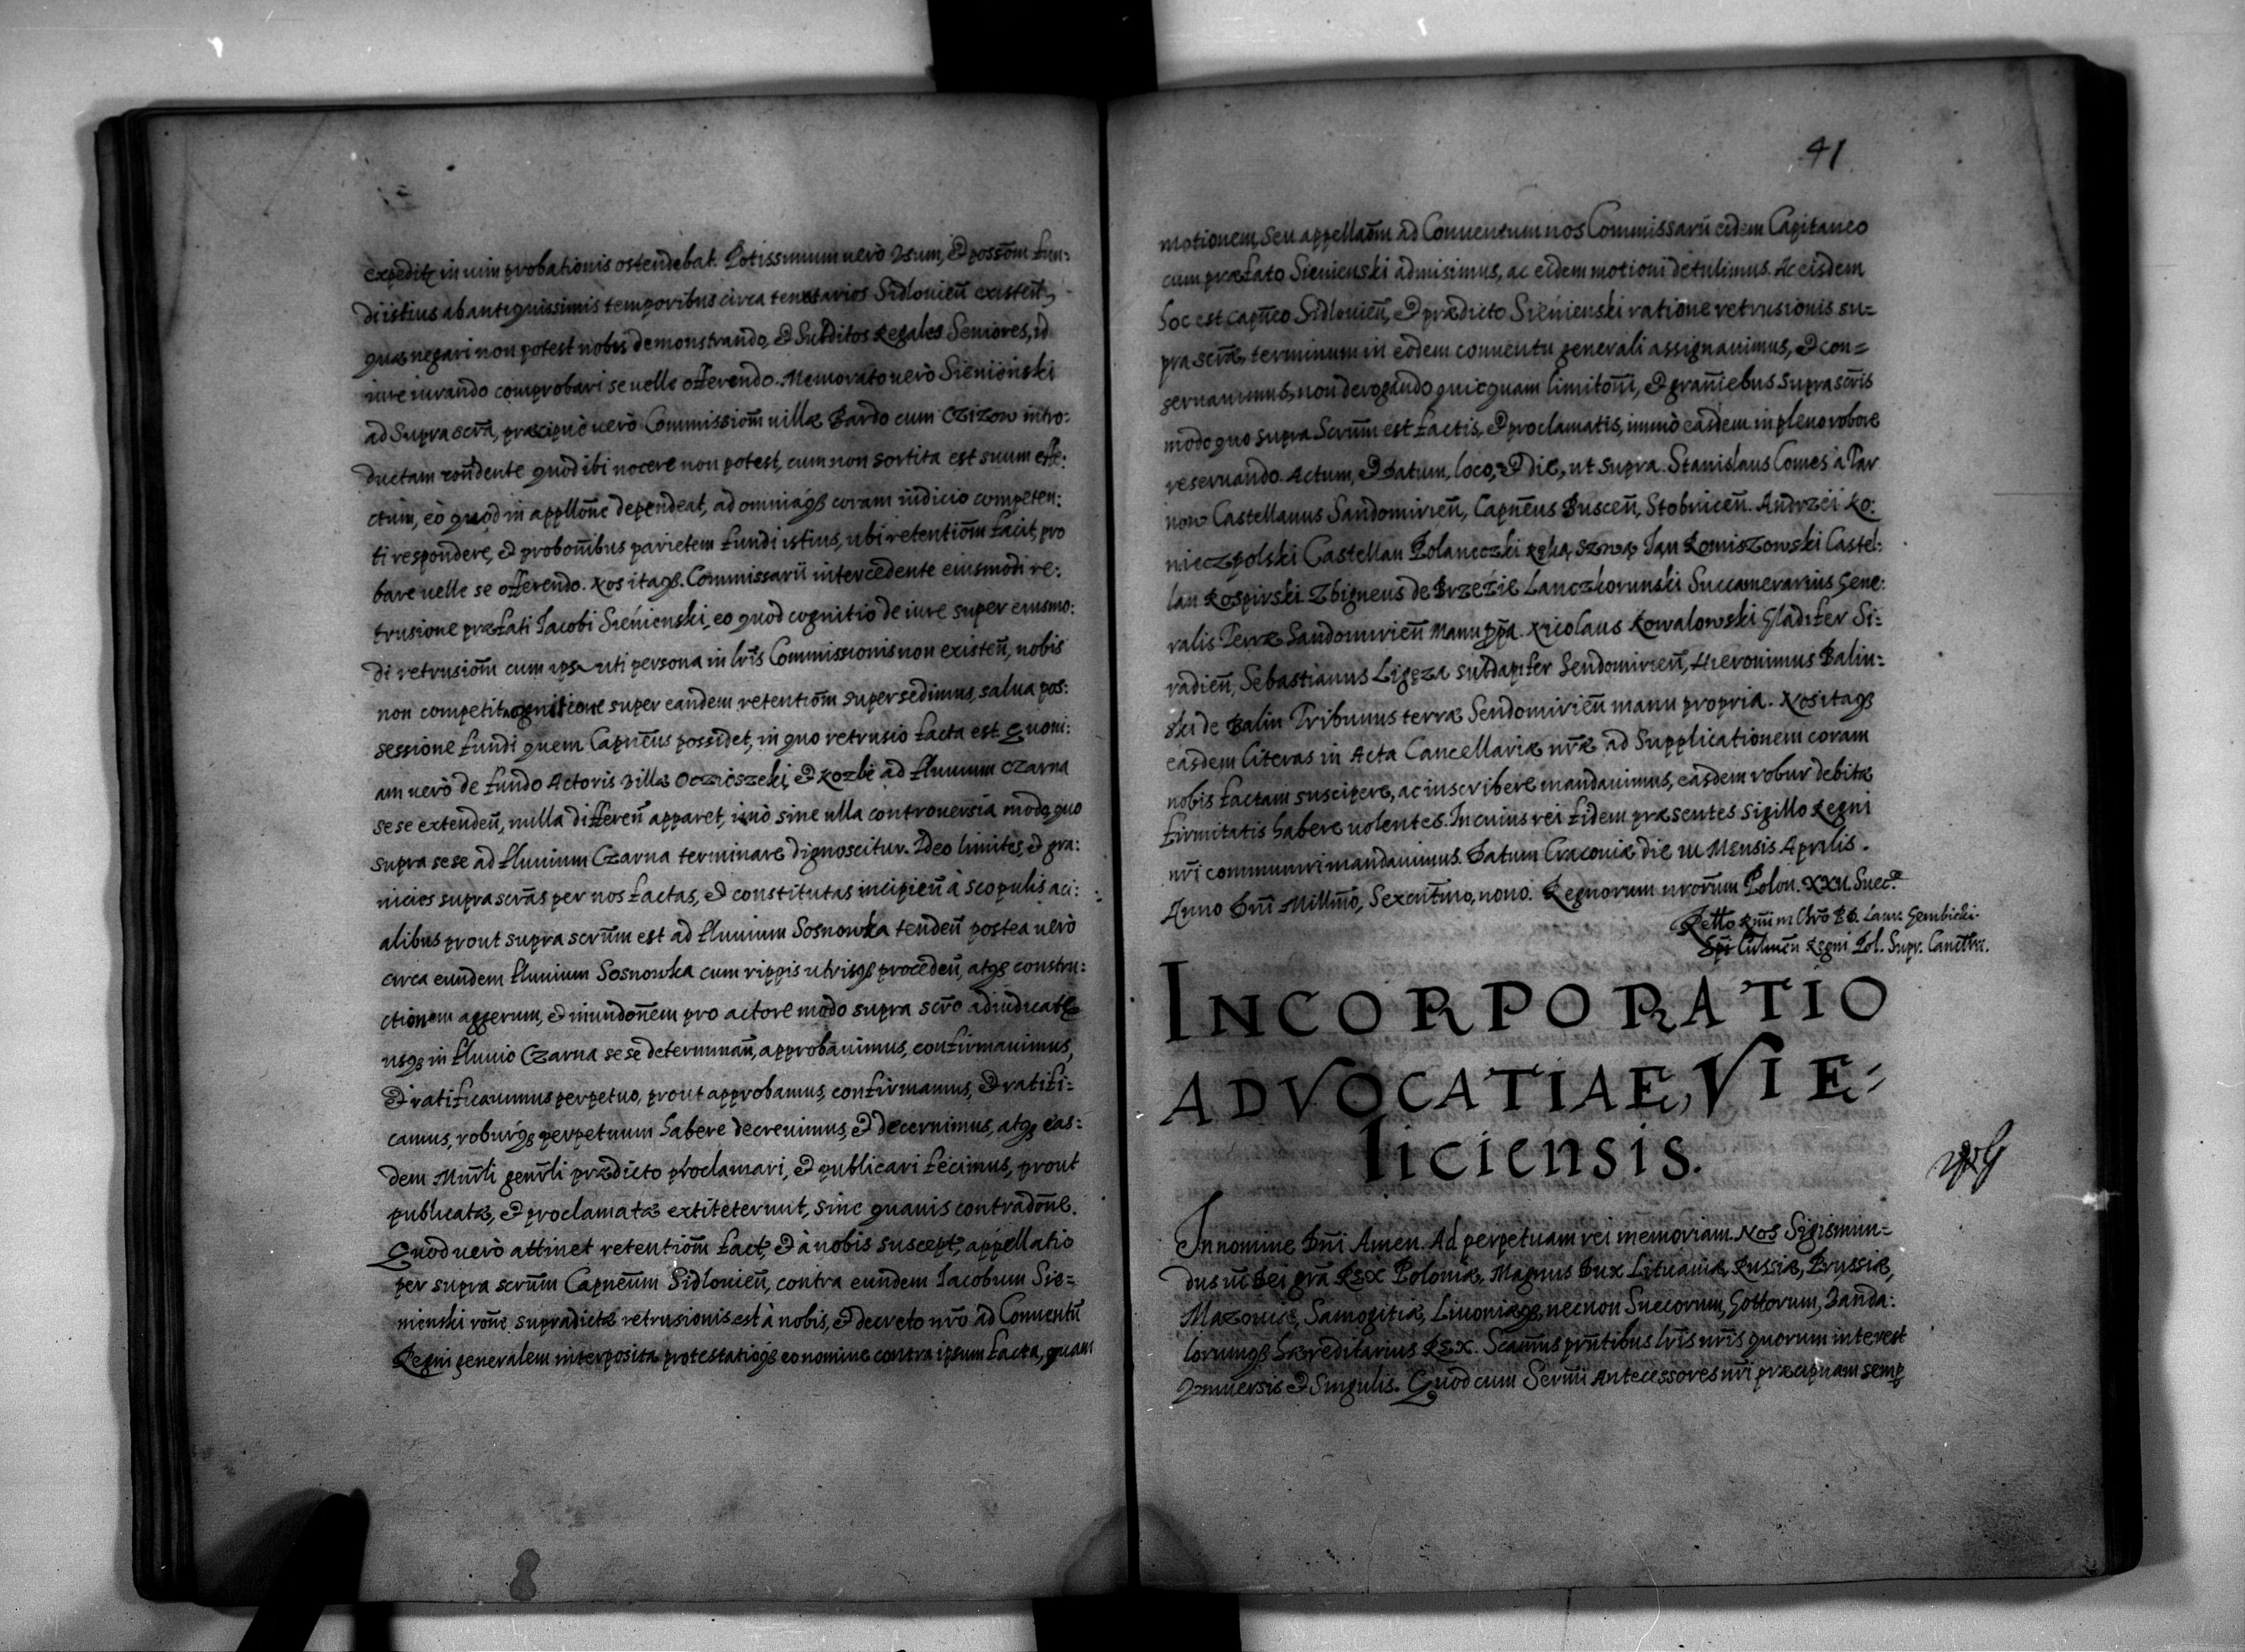 expedite in uim probationis ostendebat. Potissimum uerò Vsum, & possõm fun:
di istius ab antiquissimis temporibus circa tenutarios Sidlouieñ existeñ,
quæ negari non potest nobis demonstrando, & Subditos Regales Seniores, id
iure iurando comprobari se uelle offerendo. Memorato uerò Sienienski
ad Suprascrã, præcipuè uerò Commissiom̃ uillæ Bardo cum Czizow intro:
ductam rõndente quòd ibi nocere non potest, cum non sortita est suum effe:
ctum, eò quòd in appllõne dependeat, ad omniaq́ coram iudicio competen:
ti respondere, & probom̃ibus parietem fundi istius, ubi retentiom̃ facit, pro
bare uelle se offerendo. Nos itaq́ Commissarii intercedente eiusmodi re:
trusione præfati Iacobi Sienienski, eo quod cognitio de iure super eiusmo:
di retrusiom̃ cum ipso uti persona in lrĩs Commissionis non existeñ, nobis
non competit cognitione super eandem retentiom̃ supersedimus, salua pos:
sessione fundi quem Capnẽus possidet, in quo retrusio facta est. Quoni:
am uerò de fundo Actoris Villæ Oczieszeki, & Kozle ad fluuium Czarna
sese extendeñ, nulla differeñ apparet, imò sine ulla controuersia modo, quo
supra sese ad fluuium Czarna terminare dignoscitur. Ideo limites, & gra:
nicies suprascrãs per nos factas, & constitutas incipieñ à scopulis aci:
alibus prout supra scrũm est ad fluuium Sosnowka tendeñ postea uerò
circa eundem fluuium Sosnowka cum rippis utrisq́ procedeñ, atq́ constru:
ctionem aggerum, & inundoñem pro actore modo supra scrõ adiudicat
usq́ in fluuio Czarna sese determinañ, approbauimus, confirmauimus,
& ratificauimus perpetuo, prout approbamus, confirmamus, & ratifi=
camus, roburq́ perpetuum habere decreuimus, & decernimus, atq́ eas:
dem Mnr̃li genr̃li prædicto proclamari, & publicari fecimus, prout
publicatæ, & proclamatæ extiteterunt, sine quauis contradoñe.
Quod uerò attinet retentiom̃ fact, & à nobis suscept, appellatio
per supra scrũm Capneũm Sidlouieñ, contra eundem Iacobum Sie=
nienski rõne supradictæ retrusionis est à nobis, & decreto nrõ ad Conuentũ
Regni generalem interposita protestatioq́ eo nomine contra ipsum facta, quam
41
motionem, seu appellaom̃ ad Conuentum nos Commissarii eidem Capitaneo
cum præfato Sienienski admisimus, ac eidem motioni detulimus. Ac eisdem
hoc est capñeo Sidlouieñ, & prædicto Sienienski ratione retrusionis su=
pra scræ, terminum in eodem conuentu generali assignauimus, & con=
seruauimus, non derogando quicquam limitom̃, & graniebus suprascrĩs
modo quo supra Scrũm est factis, & proclamatis, immò easdem in pleno robore
reseruando. Actum, & Datum, loco, & die, ut supra. Stanislaus Comes à Tar
now Castellanus Sandomirieñ, Capñeus Buscen̄, Stobnicen̄. Andrzei Ko:
nieczpolski Castellan Polanieczki ręką swą Jan Komiszowski Castel:
lan Rospirski Zbigneus de Brzezie Lanczkorunski Succamerarius Gene:
ralis Terræ Sandomirieñ Manu pp̃a. Nicolaus Kowalowski Gladifer Si:
radieñ, Sebastianus Ligęza subdapifer Sendomirieñ, Hieronimus Balin=
ski de Balin Tribunus terræ Sendomirieñ manu propria. Nos itaq́
easdem literas in Acta Cancellariæ nrẽ ad Supplicationem coram
nobis factam suscipere, ac inscribere mandauimus, easdem robur debitæ
firmitatis habere uolentes. In cuius rei fidem præsentes Sigillo Regni
nrĩ communiri mandauimus. Datum Cracoviæ die III Mensis Aprilis.
Anno Dnĩ Millm̃o, Sexcntmo, nono. Regnorum nrorũm Polon. XXII. Suec.
Retto Rm̃i in Chrõ P.D. Laur: Gembicki.
Epĩ Culmen̄ Regni Pol. Supr. Cancellar.
INCORPORATIO
ADVOCATIAE, VIE=
liciensis.
In nomine Dnĩ Amen. Ad perpetuam rei memoriam. Nos Sigismun=
dus III Dei grã REX Poloniæ, Magnus Dux Lituaniæ, Russiæ, Prussiæ,
Mazouiæ, Samogitiæ, Liuoniæq́, necnon Suecorum, Gottorum, Vanda:
lorumq́ hæreditarius REX. Scam̃us prñtibus lrĩs nrĩs quorum interest
Vniuersis & Singulis. Quod cum Sermĩ Antecessores nrĩ præcipuam semp